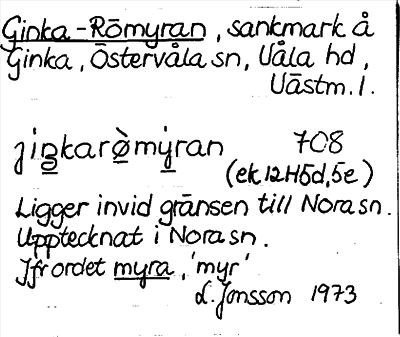 Ginka-Römyran, sankmark å
Ginka, Östervåla sn, Våla hd,
Västm. l.
jiṉkarò̱mẏ̱ran 708
(ek 12H5d,5e)
Ligger invid gränsen till Nora sn.
Upptecknat i Nora sn.
Jfr ordet myra, 'myr'
L. Jonsson 1973